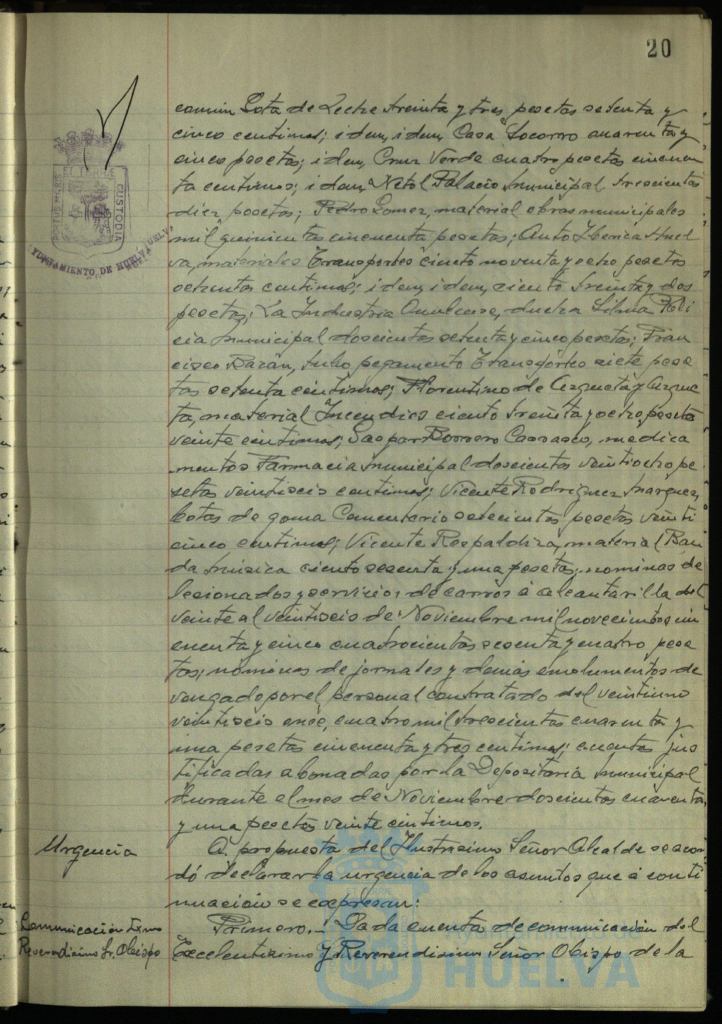 20
comun Gota de Leche treinta y tres pesetas setenta y
cinco centimos; idem, idem, Casa Socorro cuarenta y
cinco pesetas; idem, Cruz Verde cuatro pesetas cincuen
ta centimos; idem, Netol Palacio Municipal trescientas
diez pesetas; Pedro Gomez, material obras municipales
mil quinientas cincuenta pesetas; Auto Iberica Huel
va, materiales Transportes ciento noventa y ocho pesetas
setenta centimos; idem, idem, ciento treinta y dos
pesetas; La Industria Onubense, ducha Silma Poli
cia Municipal doscientas setenta y cinco pesetas; Fran
cisco Bazán, tubo pegamento Transportes siete pese
tas setenta centimos; Florentino de Azqueta y Azque
ta, material Incendios ciento treinta y ocho pesetas
veinte centimos; Gaspar Borrero Carrasco, medica
mentos Farmacia municipal doscientas veintiocho pe
setas veintiseis centimos; Vicente Rodriguez Marquez,
botas de goma Cementerio setecientas pesetas veinti
cinco centimos; Vicente Respaldiza, material Ban
da Música ciento sesenta y una pesetas; nominas de
lesionados y servicios de carros á alcantarilla del
veinte al veintiseis de Noviembre mil novecientos cin
cuenta y cinco cuatrocientas sesenta y cuatro pese
tas; nominas de jornales y demás emolumentos de
vengado por el personal contratado del veintiuno
veintiseis cuatro mil trescientas cuarenta y
una pesetas cincuenta y tres centimos; cuentas jus
tificadas abonadas por la Depositaria municipal
durante el mes de Noviembre doscientas cuarenta
y una pesetas veinte centimos.
Urgencia
A propuesta del Ilustrisimo Señor Alcalde se acor
dó declarar la urgencia de los asuntos que á conti
nuación se expresan:
Comunicación Excmo
Reverendisimo Sr. Obispo
Primero.- Dada cuenta de comunicación del
Excelentisimo y Reverendisimo Señor Obispo de la
CUSTODIA
AYUNTAMIENTO DE HUELVA
HUELVA